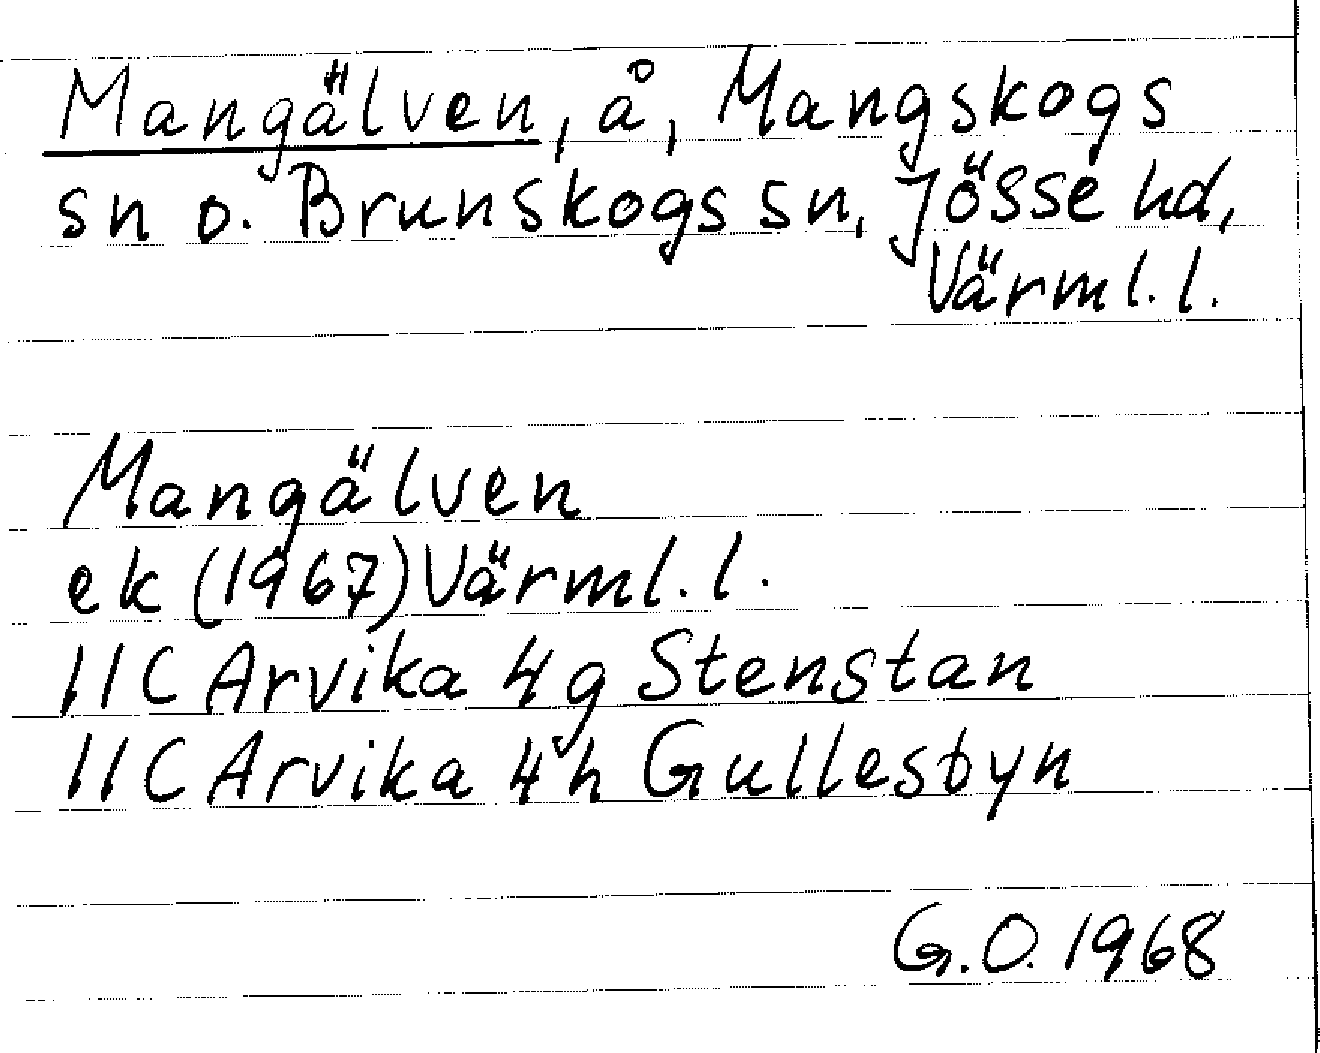 Mangälven, å, Mangskogs
sn o. Brunskogs sn, Jösse hd,
Värml. l.
Mangälven
ek (1967) Värml. l.
11C Arvika 4g Stenstan
11C Arvika 4h Gullesbyn
G.O. 1968